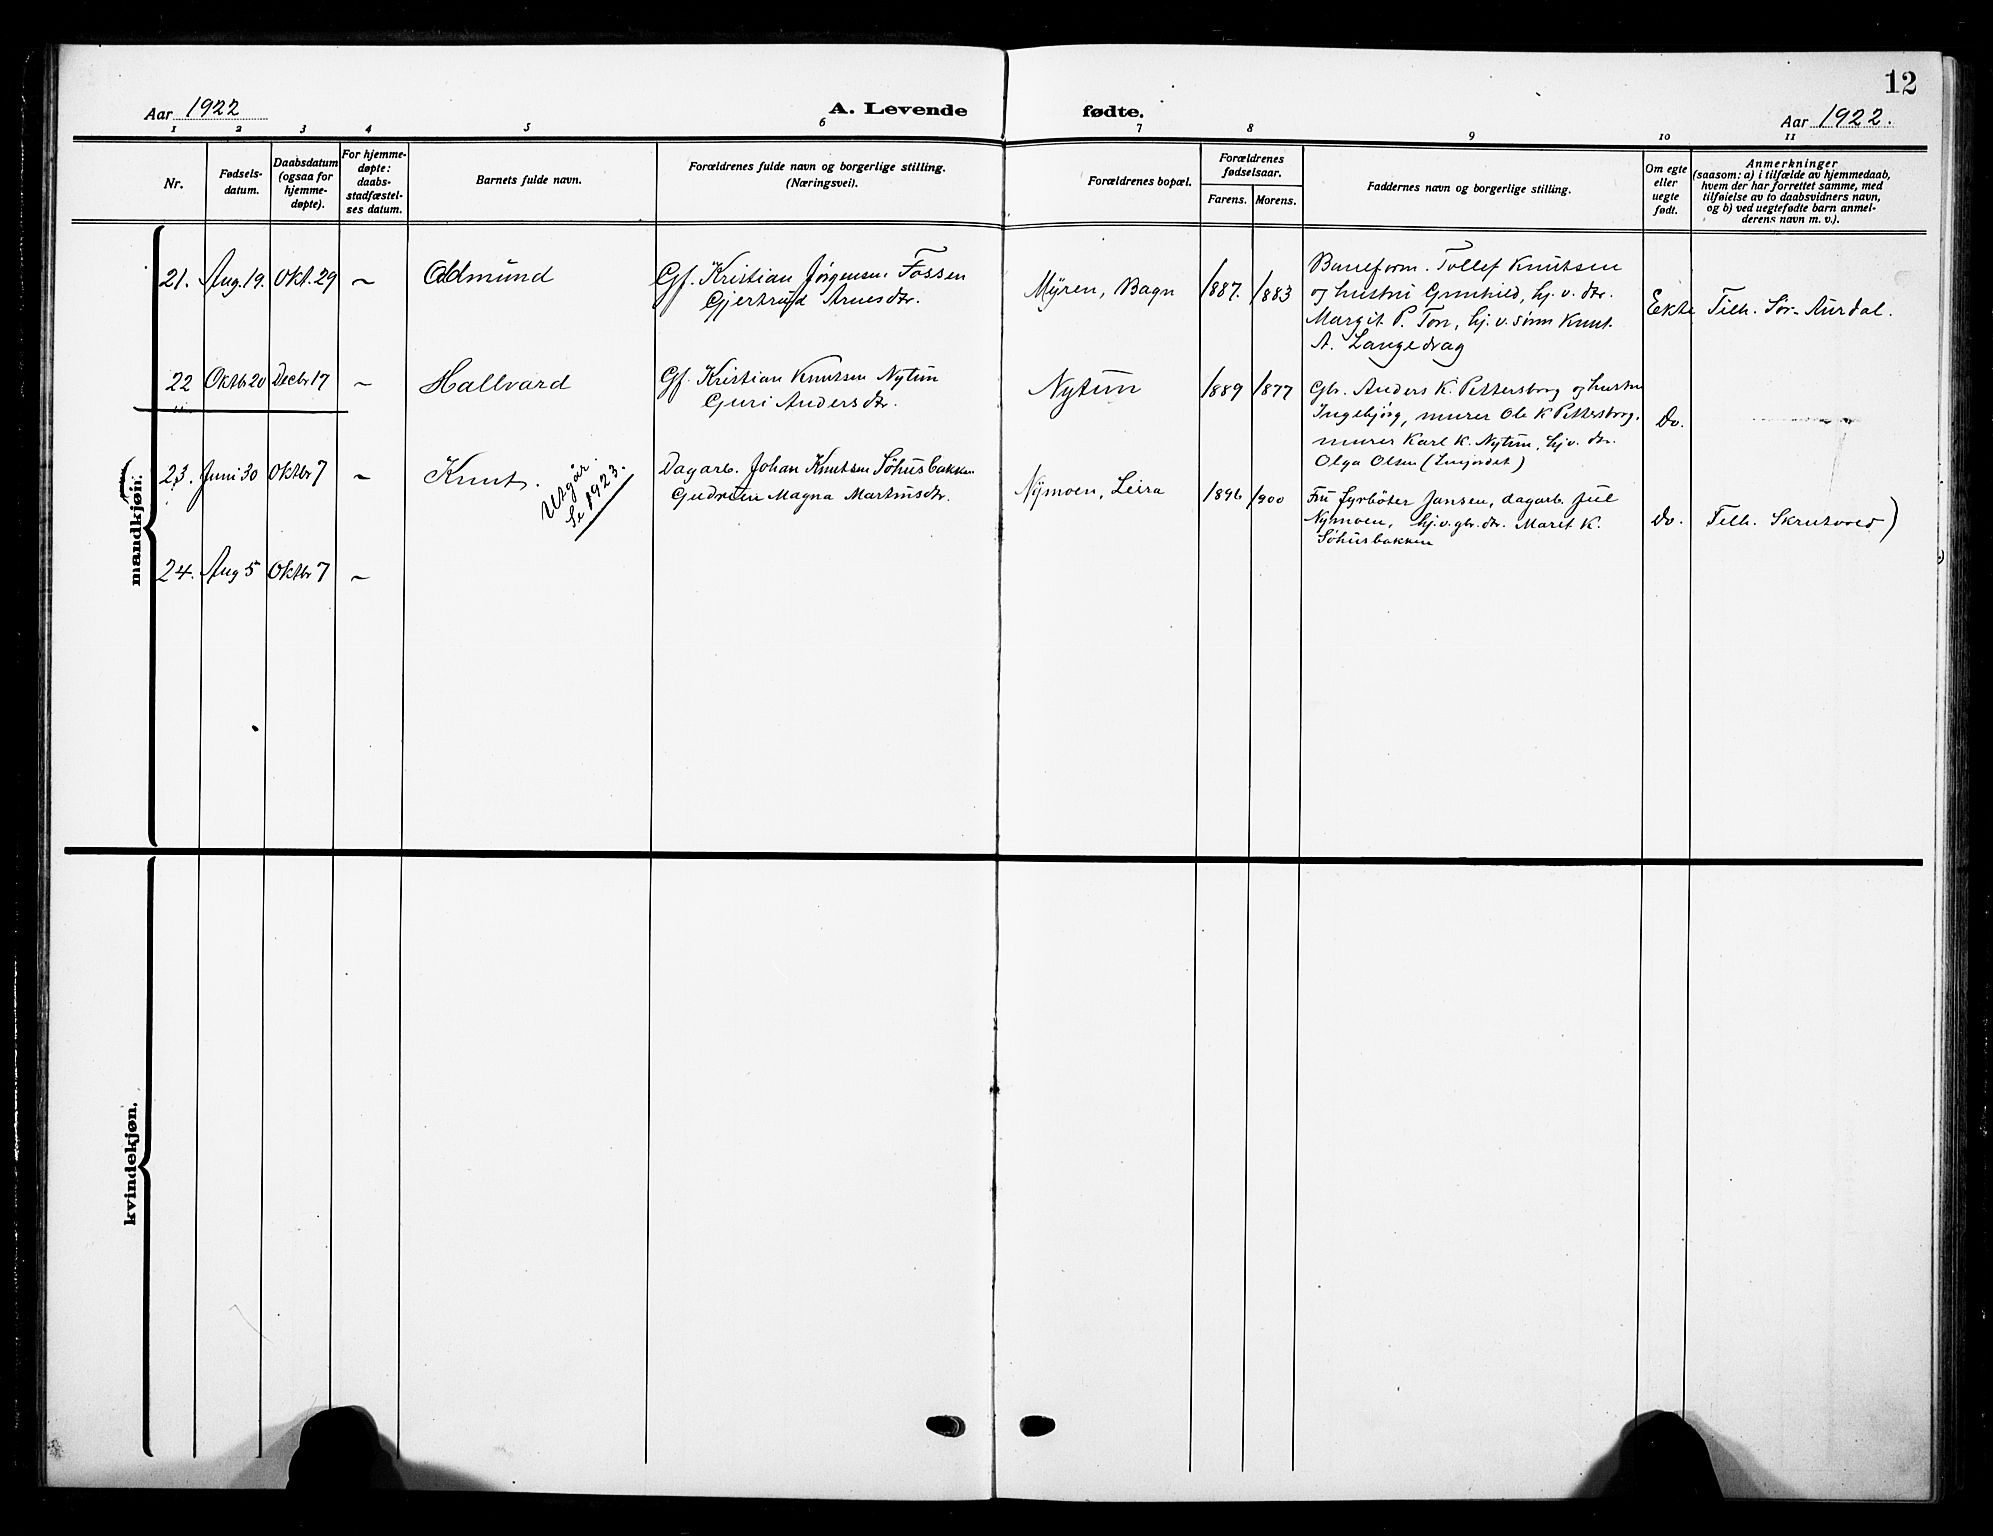 12
Aar 1922
A. Levende fødte.
Aar 1922.
1 2 3 4 5 6 7 8 9 10 11
Nr.
Fødsels-
datum.
Daabsdatum
(ogsaa for
hjemme-
døpte).
For hjemme-
døpte:
daabs-
stadfæstel-
ses datum.
Barnets fulde navn.
Forældrenes fulde navn og borgerlige stilling.
(Næringsvei).
Forældrenes bopæl.
Forældrenes
fødselsaar.
Farens. Morens.
Faddernes navn og borgerlige stilling.
Om egte
eller
uegte
født.
Anmerkninger
(saasom: a) i tilfælde av hjemmedaab,
hvem der har forrettet samme, med
tilføielse av to daabsvidners navn,
og b) ved uegtefødte barn anmel-
derens navn m. v.).
mandkjøn.
21. Aug. 19. Okt. 29 – Oddmund
Gf. Kristian Jørgensen Fossen
Gjertrud Arnesdtr.
Myren, Bagn
1887. 1883
Baneform. Tollef Knutsen
og hustru Gunhild, hj. v. dtr.
Margit P. Ton, hj. v. sønn Knut
A. Langedrag
Ekte
Tilh. Sør-Aurdal.
22 Oktb 20 Decbr 17 – Hallvard
Gf. Kristian Knutsen Nytun
Guri Andersdtr.
Nytun
1889 1877
Gbr. Anders K. Pettersborg og hustru
Ingebjørg, murer Ole K Pettersborg.
murer Karl K. Nytun, hj. v. dtr.
Olga Olsen
Do.
23. Juni 30 Oktbr 7 – Knut.
Utgår.
Se 1923.
Dagarb. Johan Knutsen Søhusbakken
Gudrun Magna Martinsdtr.
Nymoen, Leira
1896 1900
Fru fyrbøter Jansen, dagarb. Juul
Nymoen, hj. v. gbr. dtr. Marit K.
Søhusbakken
Do.
Tilh. Skrutvold)
24. Aug 5 Oktbr 7 –
kvindekjøn.